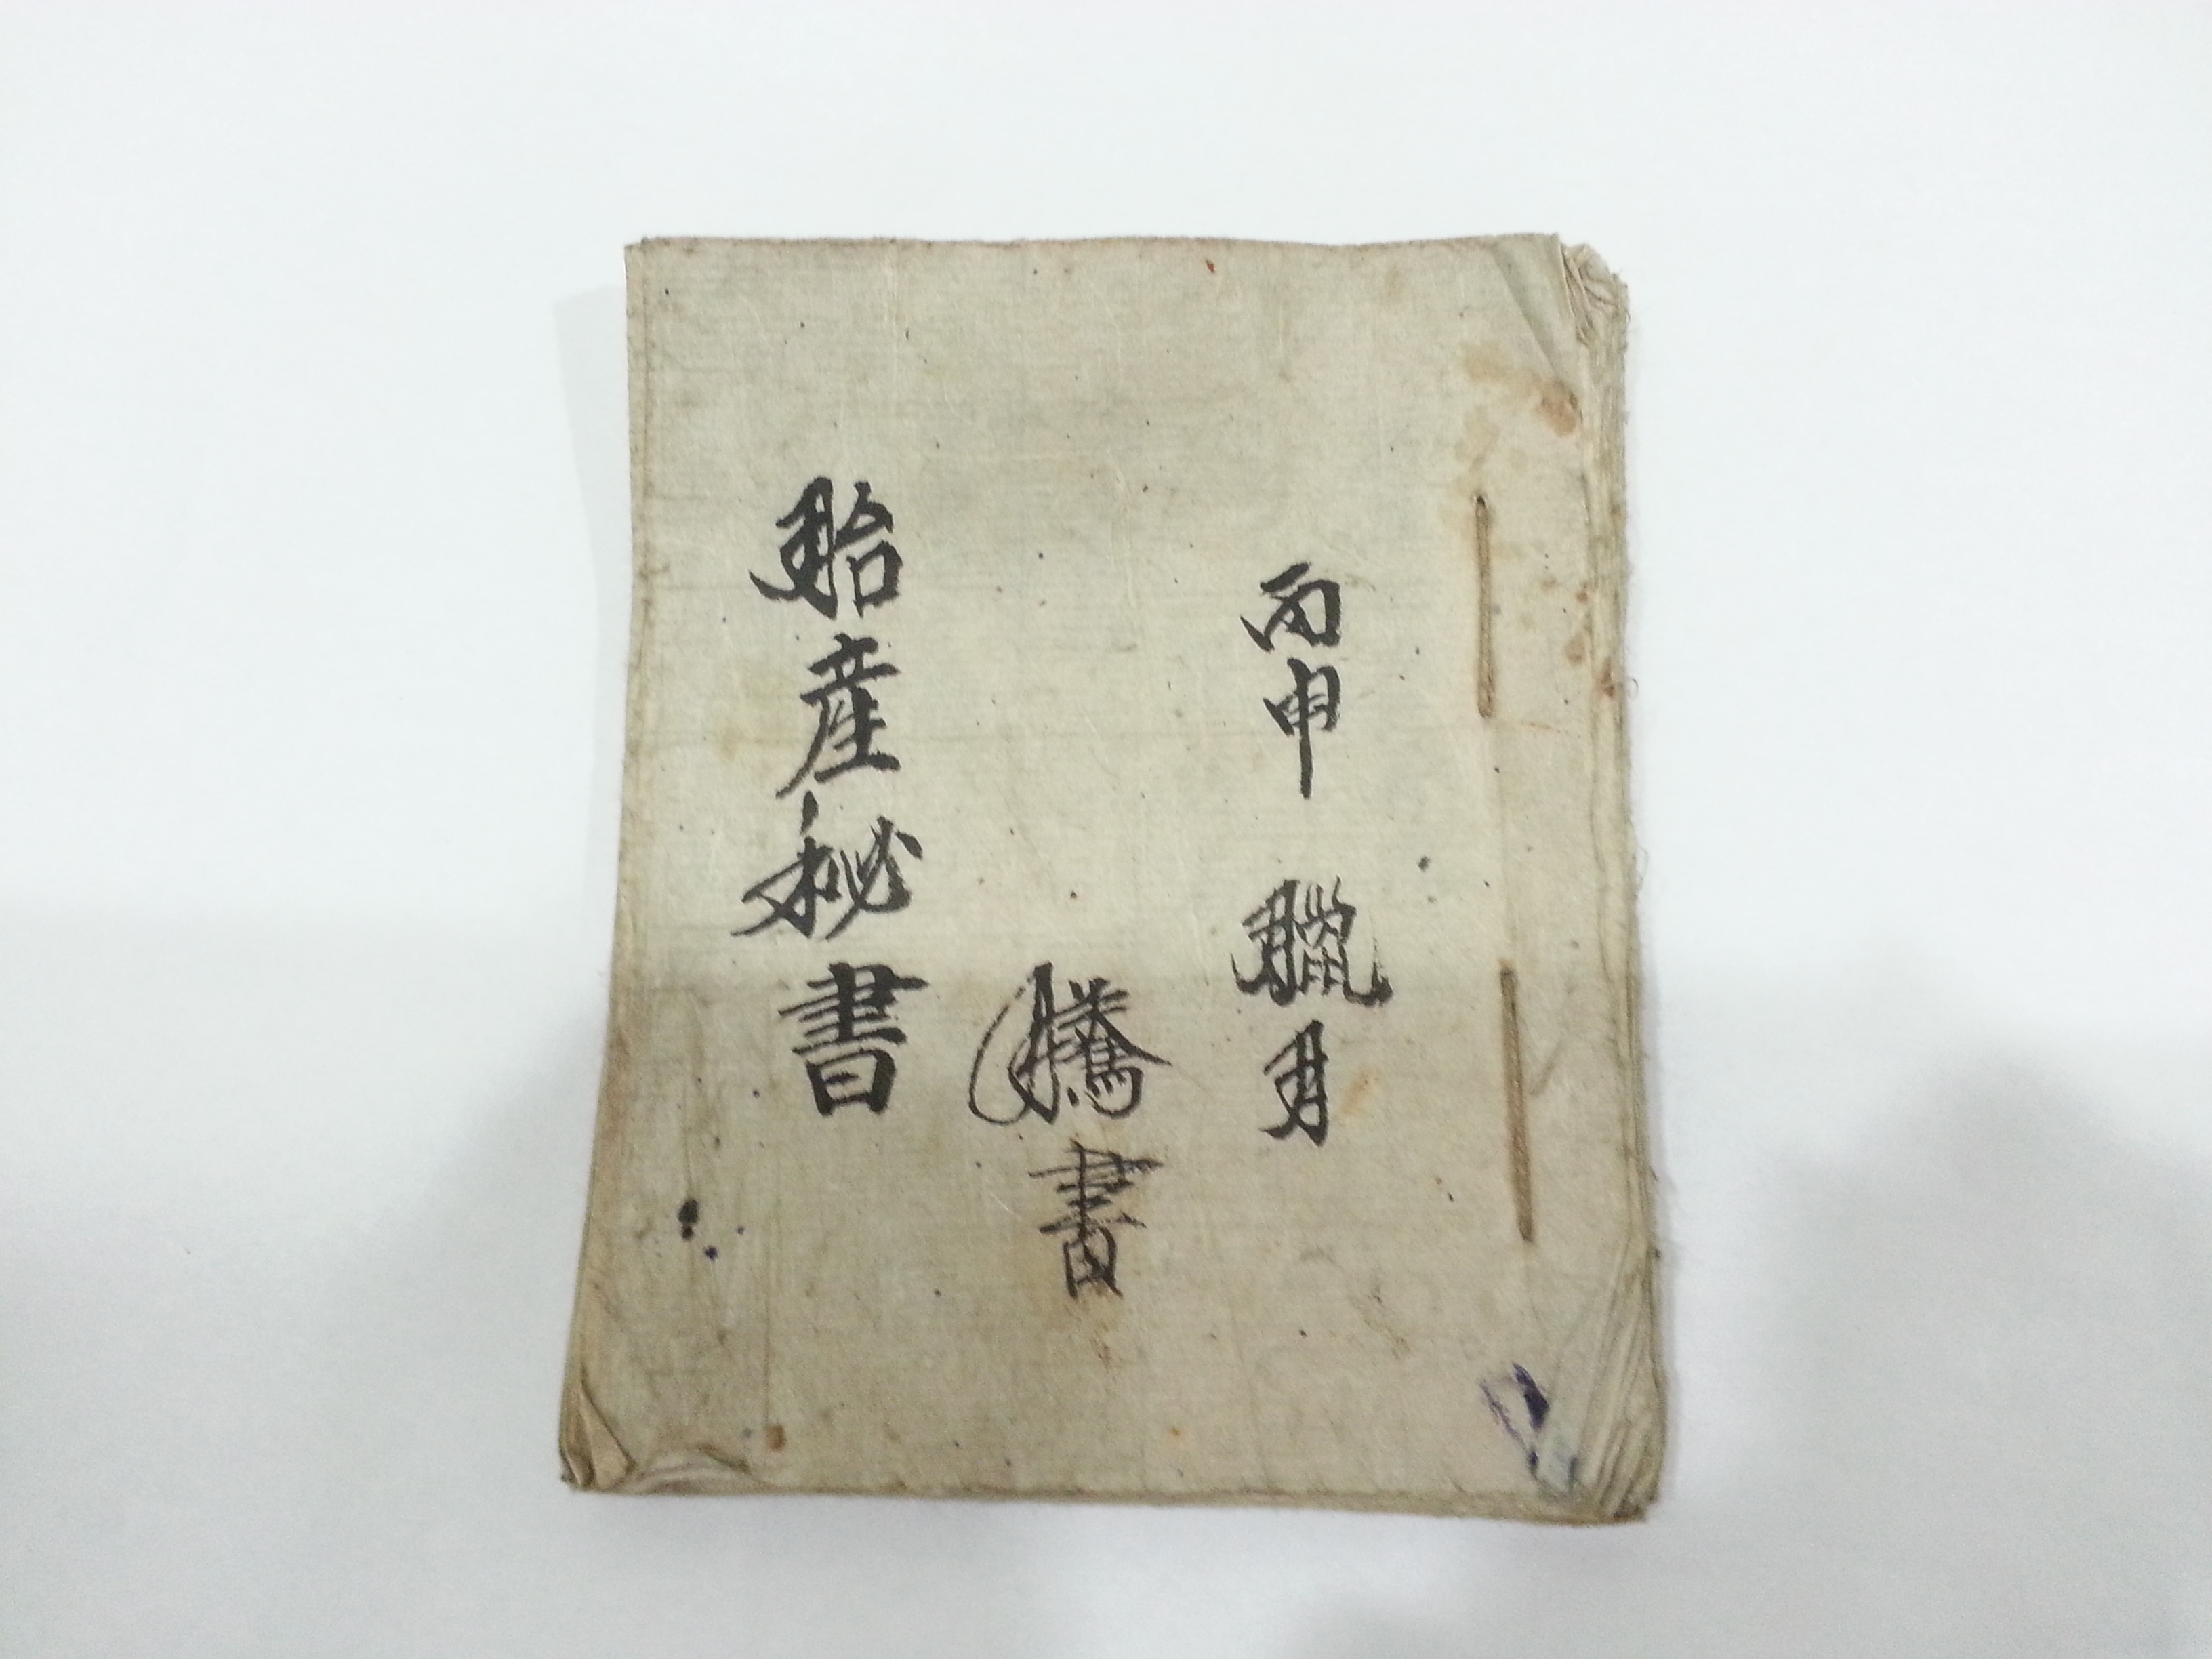 丙申 臘月
騰書
胎産秘書